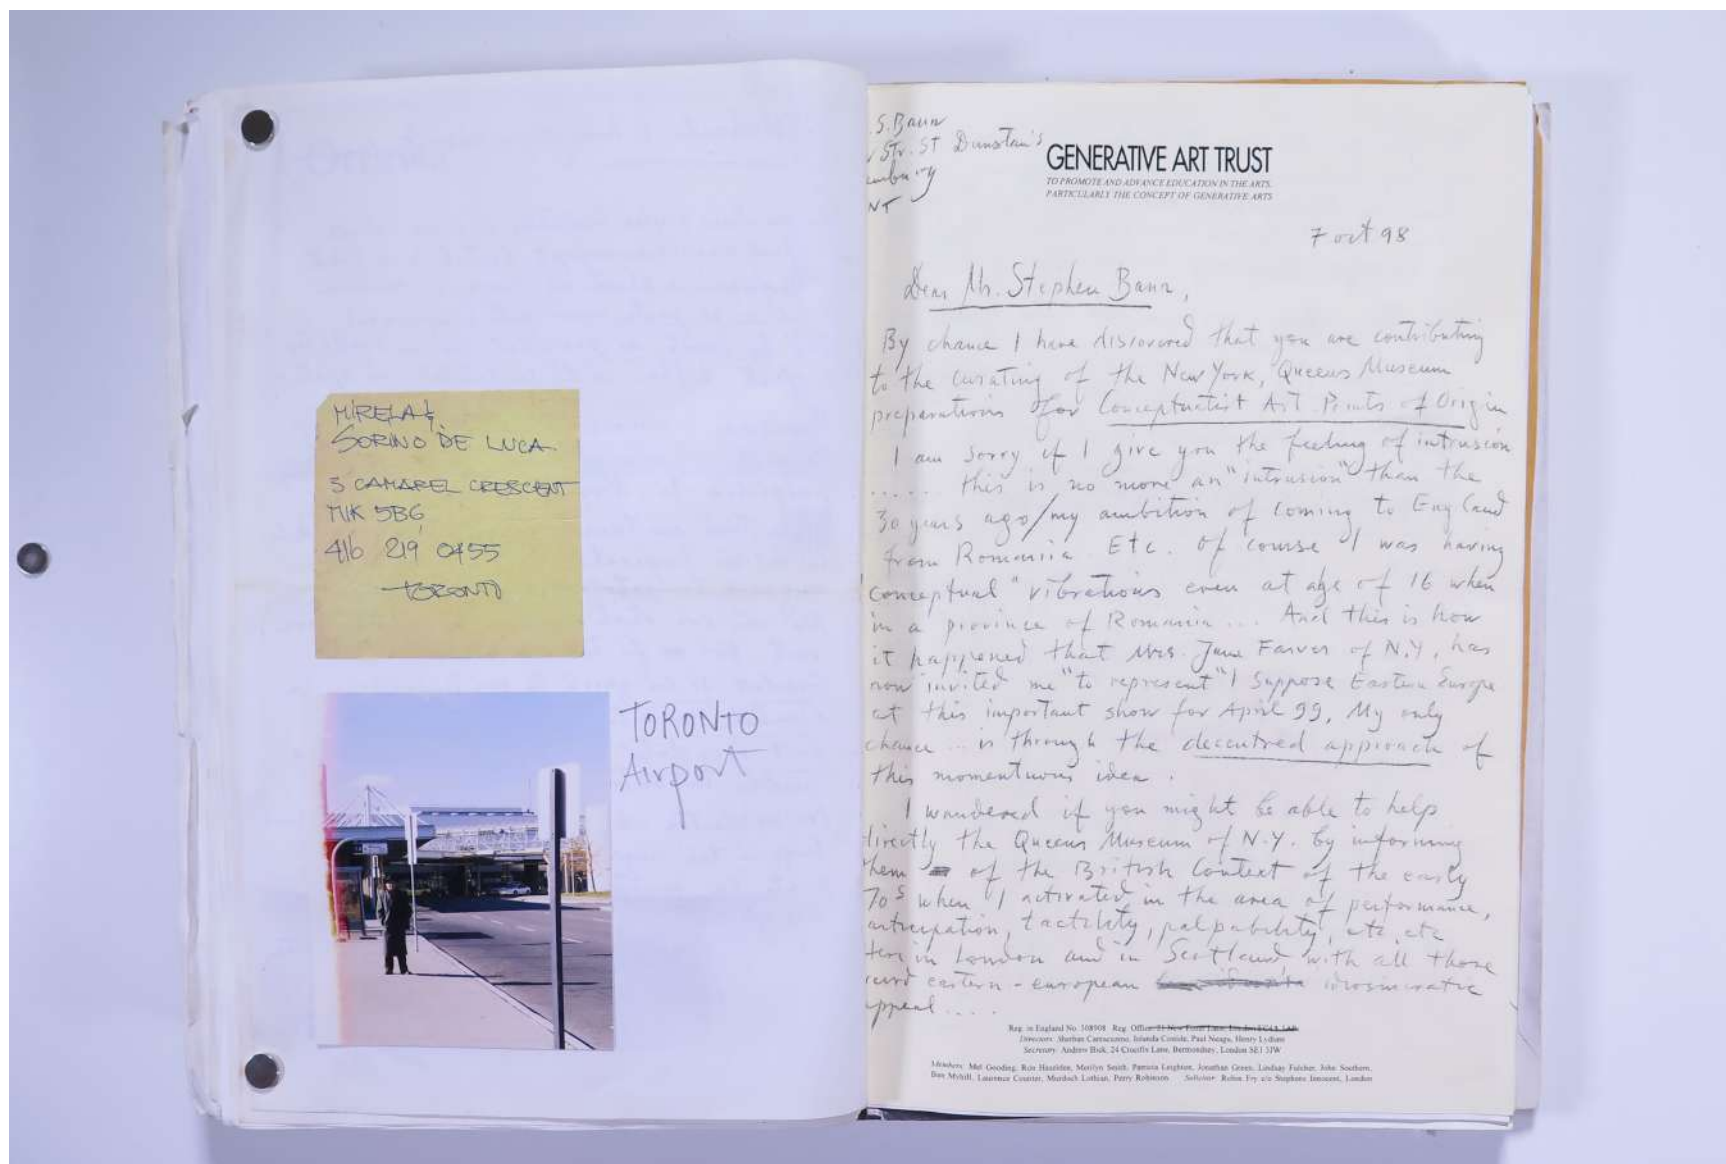 MIRELA &
SORINO DE LUCA
3 CAMAREL CRESCENT
M1K 5B6
416 219 0455
TORONTO
TORONTO
Airport
. S. Bann
Str. St Dunstan's
NT
GENERATIVE ART TRUST
TO PROMOTE AND ADVANCE EDUCATION IN THE ARTS,
PARTICULARLY THE CONCEPT OF GENERATIVE ARTS
7 oct 98
Dear Mr. Stephen Bann,
By chance I have discovered that you are contributing
to the curating of the New York, Queens Museum
preparations for Conceptualist Art Points of Origin
I am sorry if I give you the feeling of intrusion
...... this is no more an "intrusion" than the
30 years ago/my ambition of coming to England
from Romania. Etc. Of course I was having
conceptual" vibrations even at age of 16 when
in a province of Romania ... And this is how
it happened that Mrs. Jane Farver of N.Y, has
now invited me "to represent" I suppose Eastern Europe
at this important show for April 99, My only
chance ... is through the decentred approach of
this momentuous idea.
I wandered if you might be able to help
directly the Queens Museum of N.Y. by informing
them of the British Context of the early
70s when I activated in the area of performance,
anticipation, tactility, palpability, etc, etc
here in London and in Scotland with all those
weird eastern-european idiosincratic
appeal ....
Reg. in England No. 508908 Reg. Office: 21 New Fetter Lane, London EC4A 1AP
Directors: Sherban Cantacuzino, Iolanda Costide, Paul Neagu, Henry Lydiate
Secretary: Andrew Bick, 24 Crucifix Lane, Bermondsey, London SE1 3JW
Members: Mel Gooding, Ron Haselden, Marilyn Smith, Pamela Leighton, Jonathan Green, Lindsay Fulcher, John Southern,
Ben Myhill, Laurence Counter, Murdoch Lothian, Perry Robinson. Solicitor: Robin Fry c/o Stephens Innocent, London